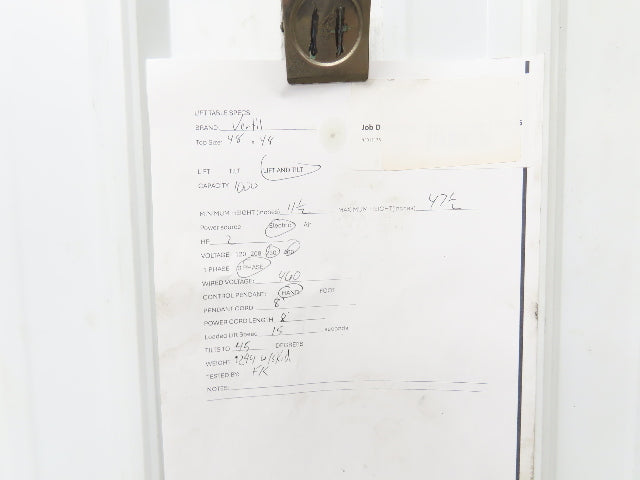 14
LIFT TABLE SPECS
BRAND Job D
Top Size: 48 x 48
LIFT TILT LIFT AND TILT
CAPACITY 1000
MINIMUM HEIGHT (inches) 11 1/2 MAXIMUM HEIGHT (inches) 47 1/2
Power source Electric Air
HP 2
VOLTAGE 120 208 230 460
1 PHASE 3 PHASE
WIRED VOLTAGE: 460
CONTROL PENDANT: HAND FOOT
PENDANT CORD 8'
POWER CORD LENGTH 8'
Loaded Lift Speed 15 seconds
TILTS TO 45 DEGREES
WEIGHT w/skid
TESTED BY: FK
NOTES: